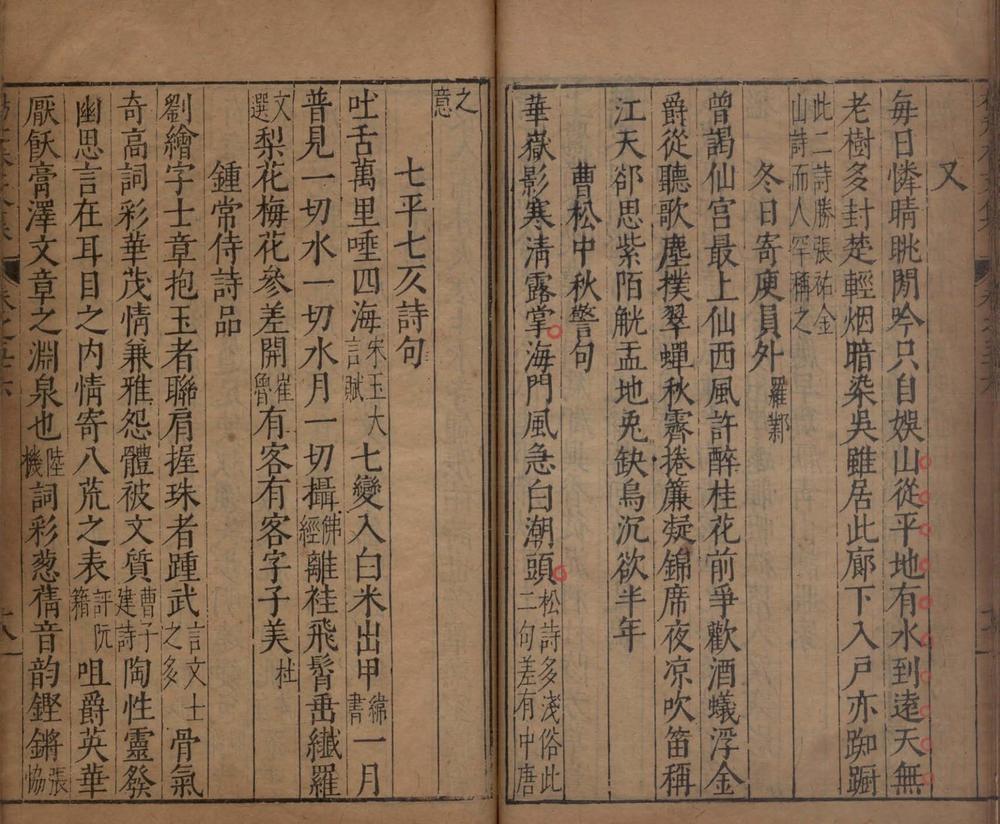 又
每日憐晴眺閒吟只自娛山從平地有水到遠天無
老樹多封楚輕烟暗染吳雖居此廊下入戸亦踟蹰
此二詩勝張祐金
山詩而人罕稱之
冬日寄庾員外羅鄴
曾謁仙宮最上仙西風許醉桂花前爭歡酒蟻浮金
爵從聽歌塵撲翠蟬秋霽捲簾凝錦席夜凉吹笛稱
江天郤思紫陌觥盂地兎缺烏沉欲半年
曹松中秋警句
華嶽影寒淸露掌海門風急白潮頭松詩多淺俗此二句差有中唐
之意
七平七仄詩句
吐舌萬里唾四海宋玉大言賦七變入白米出甲緯書一月
普見一切水一切水月一切攝佛經離袿飛髾垂纖羅
文選梨花梅花參差開崔魯有客有客字子美杜
鍾常侍詩品
劉繪字士章抱玉者聯肩握珠者踵武言文士之多骨氣
奇高詞彩華茂情兼雅怨體被文質曹子建詩陶性靈發
幽思言在耳目之內情寄八荒之表評阮籍咀爵英華
厭飫膏澤文章之淵泉也陸機詞彩葱蒨音韵鏗鏘張協